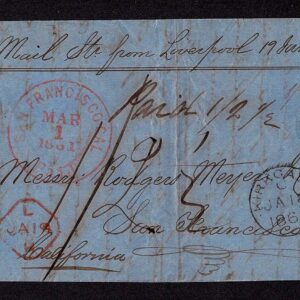 Mail Str. from Liverpool 19 Jan
Paid 1/2½
SAN FRANCISCO CAL.
MAR
1
1861
Messrs Rodgers Meyer
San Francisco
California
L
JA19
KIRKCAL
JA 18
186